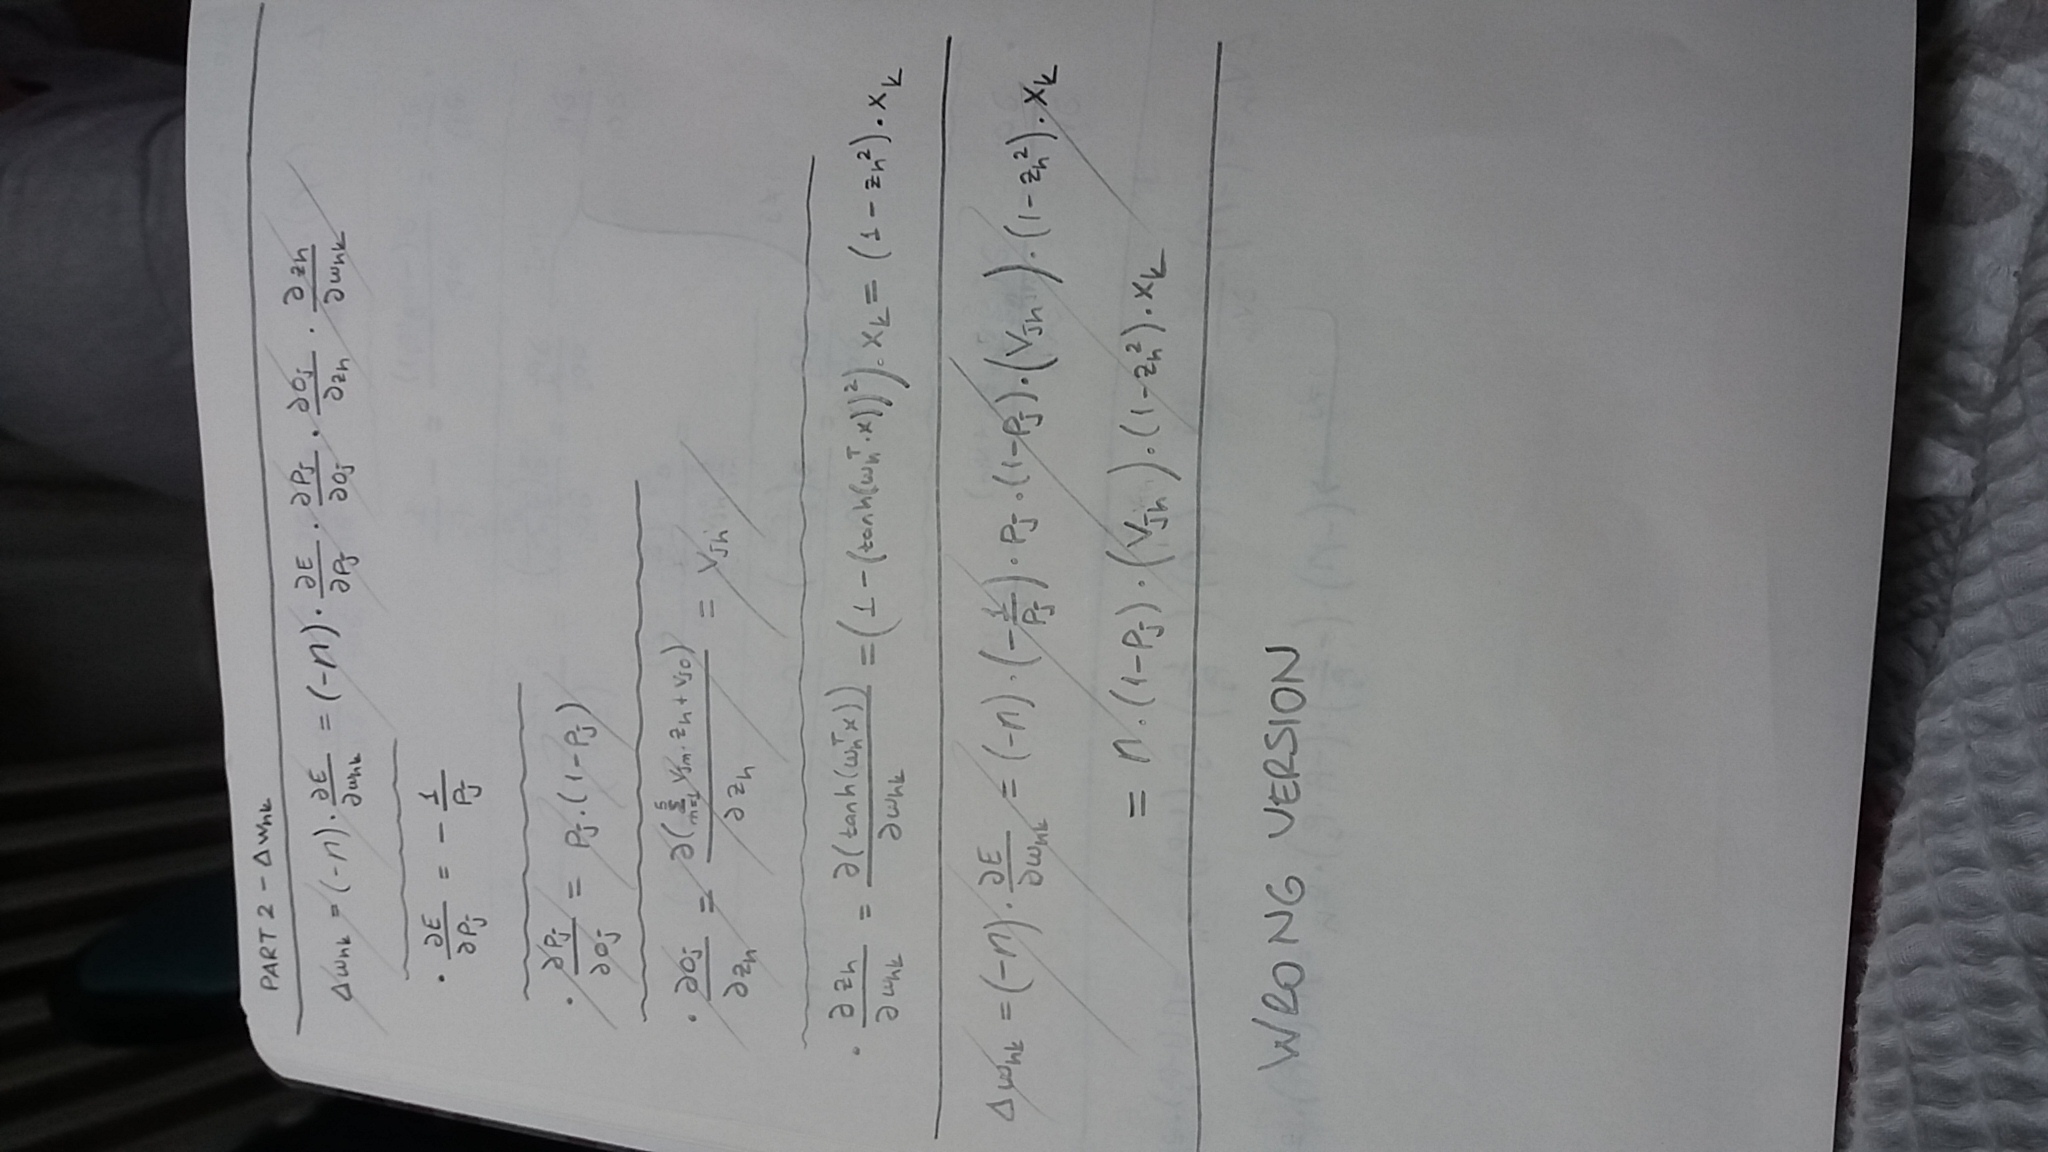 PART 2 - Δwnk
Δwnk = (-n) · ∂E/∂wnk = (-n) · ∂E/∂Pj · ∂Pj/∂oj · ∂oj/∂zn · ∂zn/∂wnk
· ∂E/∂Pj = - 1/Pj
· ∂Pj/∂oj = Pj · (1-Pj)
· ∂oj/∂zn = ∂(5Σm=1 vjm · zn + vjo)/∂zn = vjn
· ∂zn/∂wnk = ∂(tanh(wnᵀx))/∂wnk = (1 - (tanh(wnᵀ·x))²) · xk = (1 - zn²) · xk
Δwnk = (-n) · ∂E/∂wnk = (-n) · (- 1/Pj) · Pj · (1-Pj) · (Vjn) · (1-zn²) · xk
= n · (1-Pj) · (Vjn) · (1-zn²) · xk
WRONG VERSION